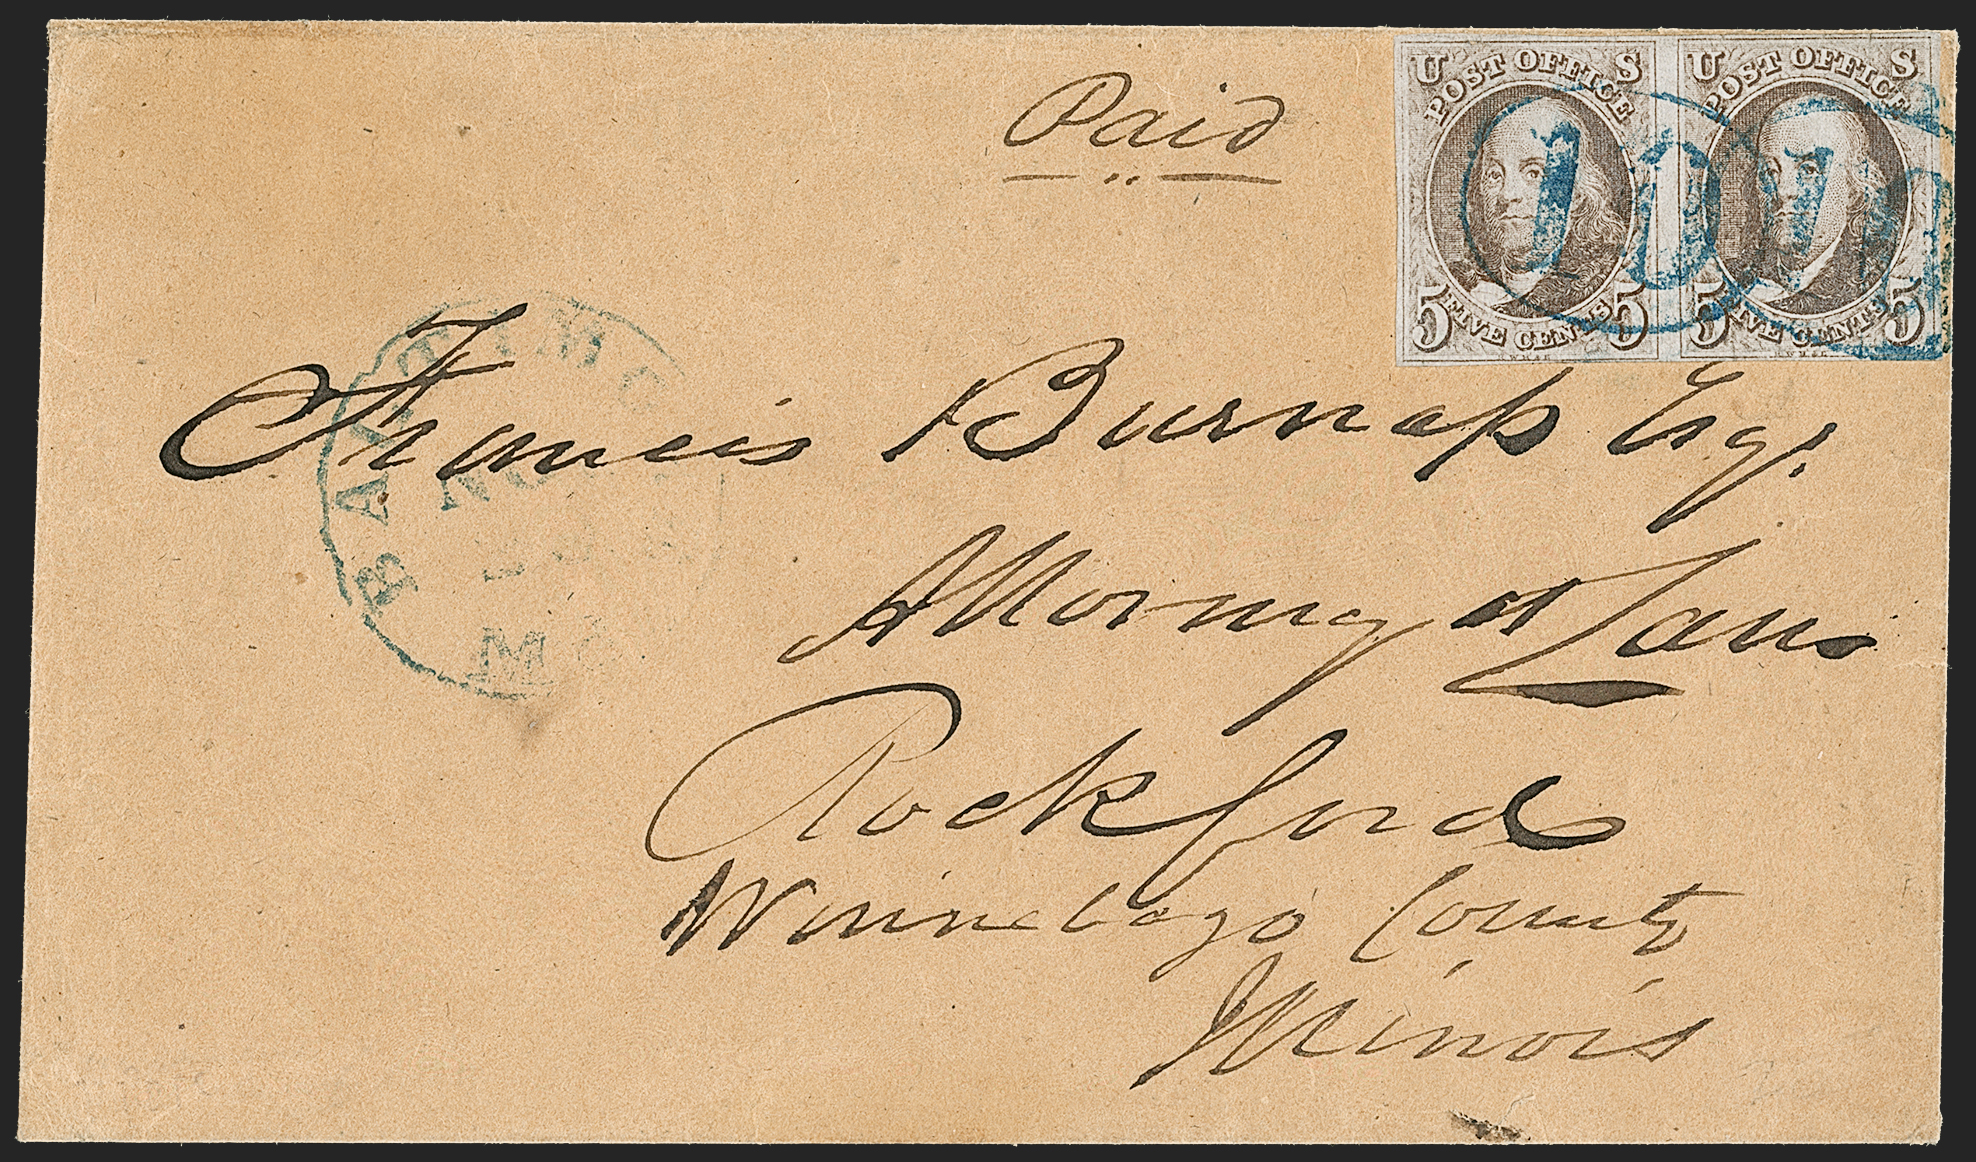 Paid
U S
POST OFFICE
5 FIVE CENTS 5
U S
POST OFFICE
5 FIVE CENTS 5
10
10
BALTIMO
NOV
Md
Francis Burnap Esq.
Attorney at Law
Rockford
Winnebago County
Illinois